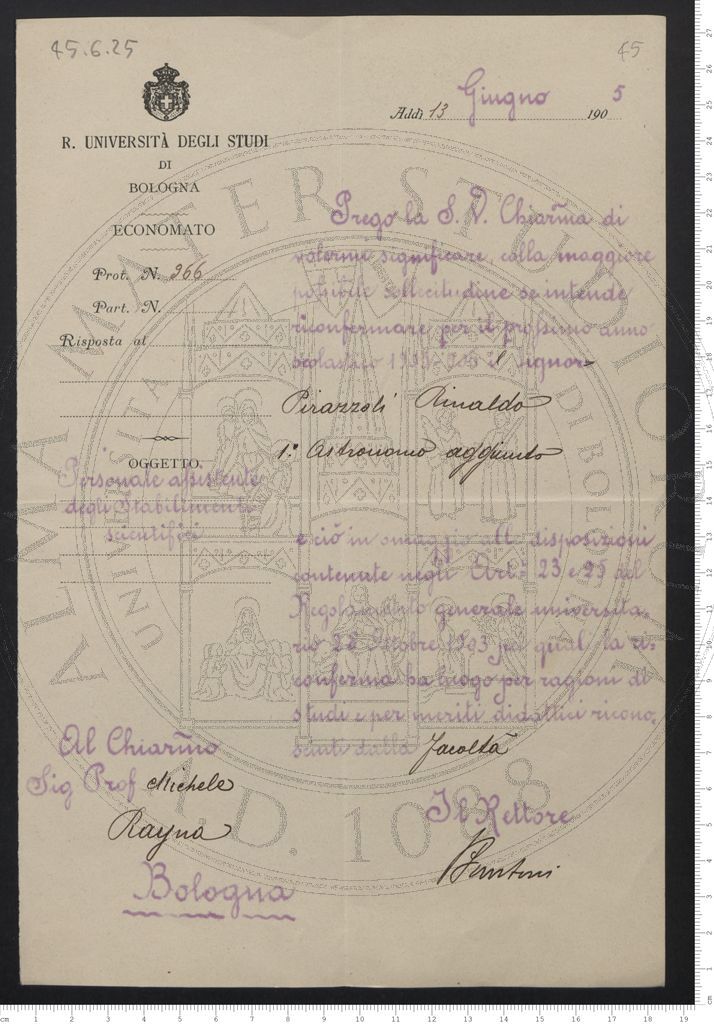 45.6.25
45
Addì 13 Giugno 1905
R. UNIVERSITÀ DEGLI STUDI
DI
BOLOGNA
ECONOMATO
Prot. N. 266
Part. N.
Risposta al
OGGETTO
Personale assistente
degli Stabilimenti
scientifici
Prego la S. V. Chiar̃ma di
volermi significare, colla maggiore
possibile sollecitudine se intende
riconfermare per il prossimo anno
scolastico 1905-906 il Signor
Pirazzoli Rinaldo
1º Astronomo aggiunto
e ciò in omaggio alle disposizioni
contenute negli Art.i 23 e 25 del
Regolamento generale universita-
rio 26 Ottobre 1903 pei quali la ri-
conferma ha luogo per ragioni di
studi e per meriti didattici ricono-
sciuti dalla Facoltà
Il Rettore
Al Chiar̃mo
Sig Prof Michele
Rayna
Bologna
ALMA MATER STUDIORUM
UNIVERSITA DI BOLOGNA
A.D. 1088
cm 1 2 3 4 5 6 7 8 9 10 11 12 13 14 15 16 17 18 19